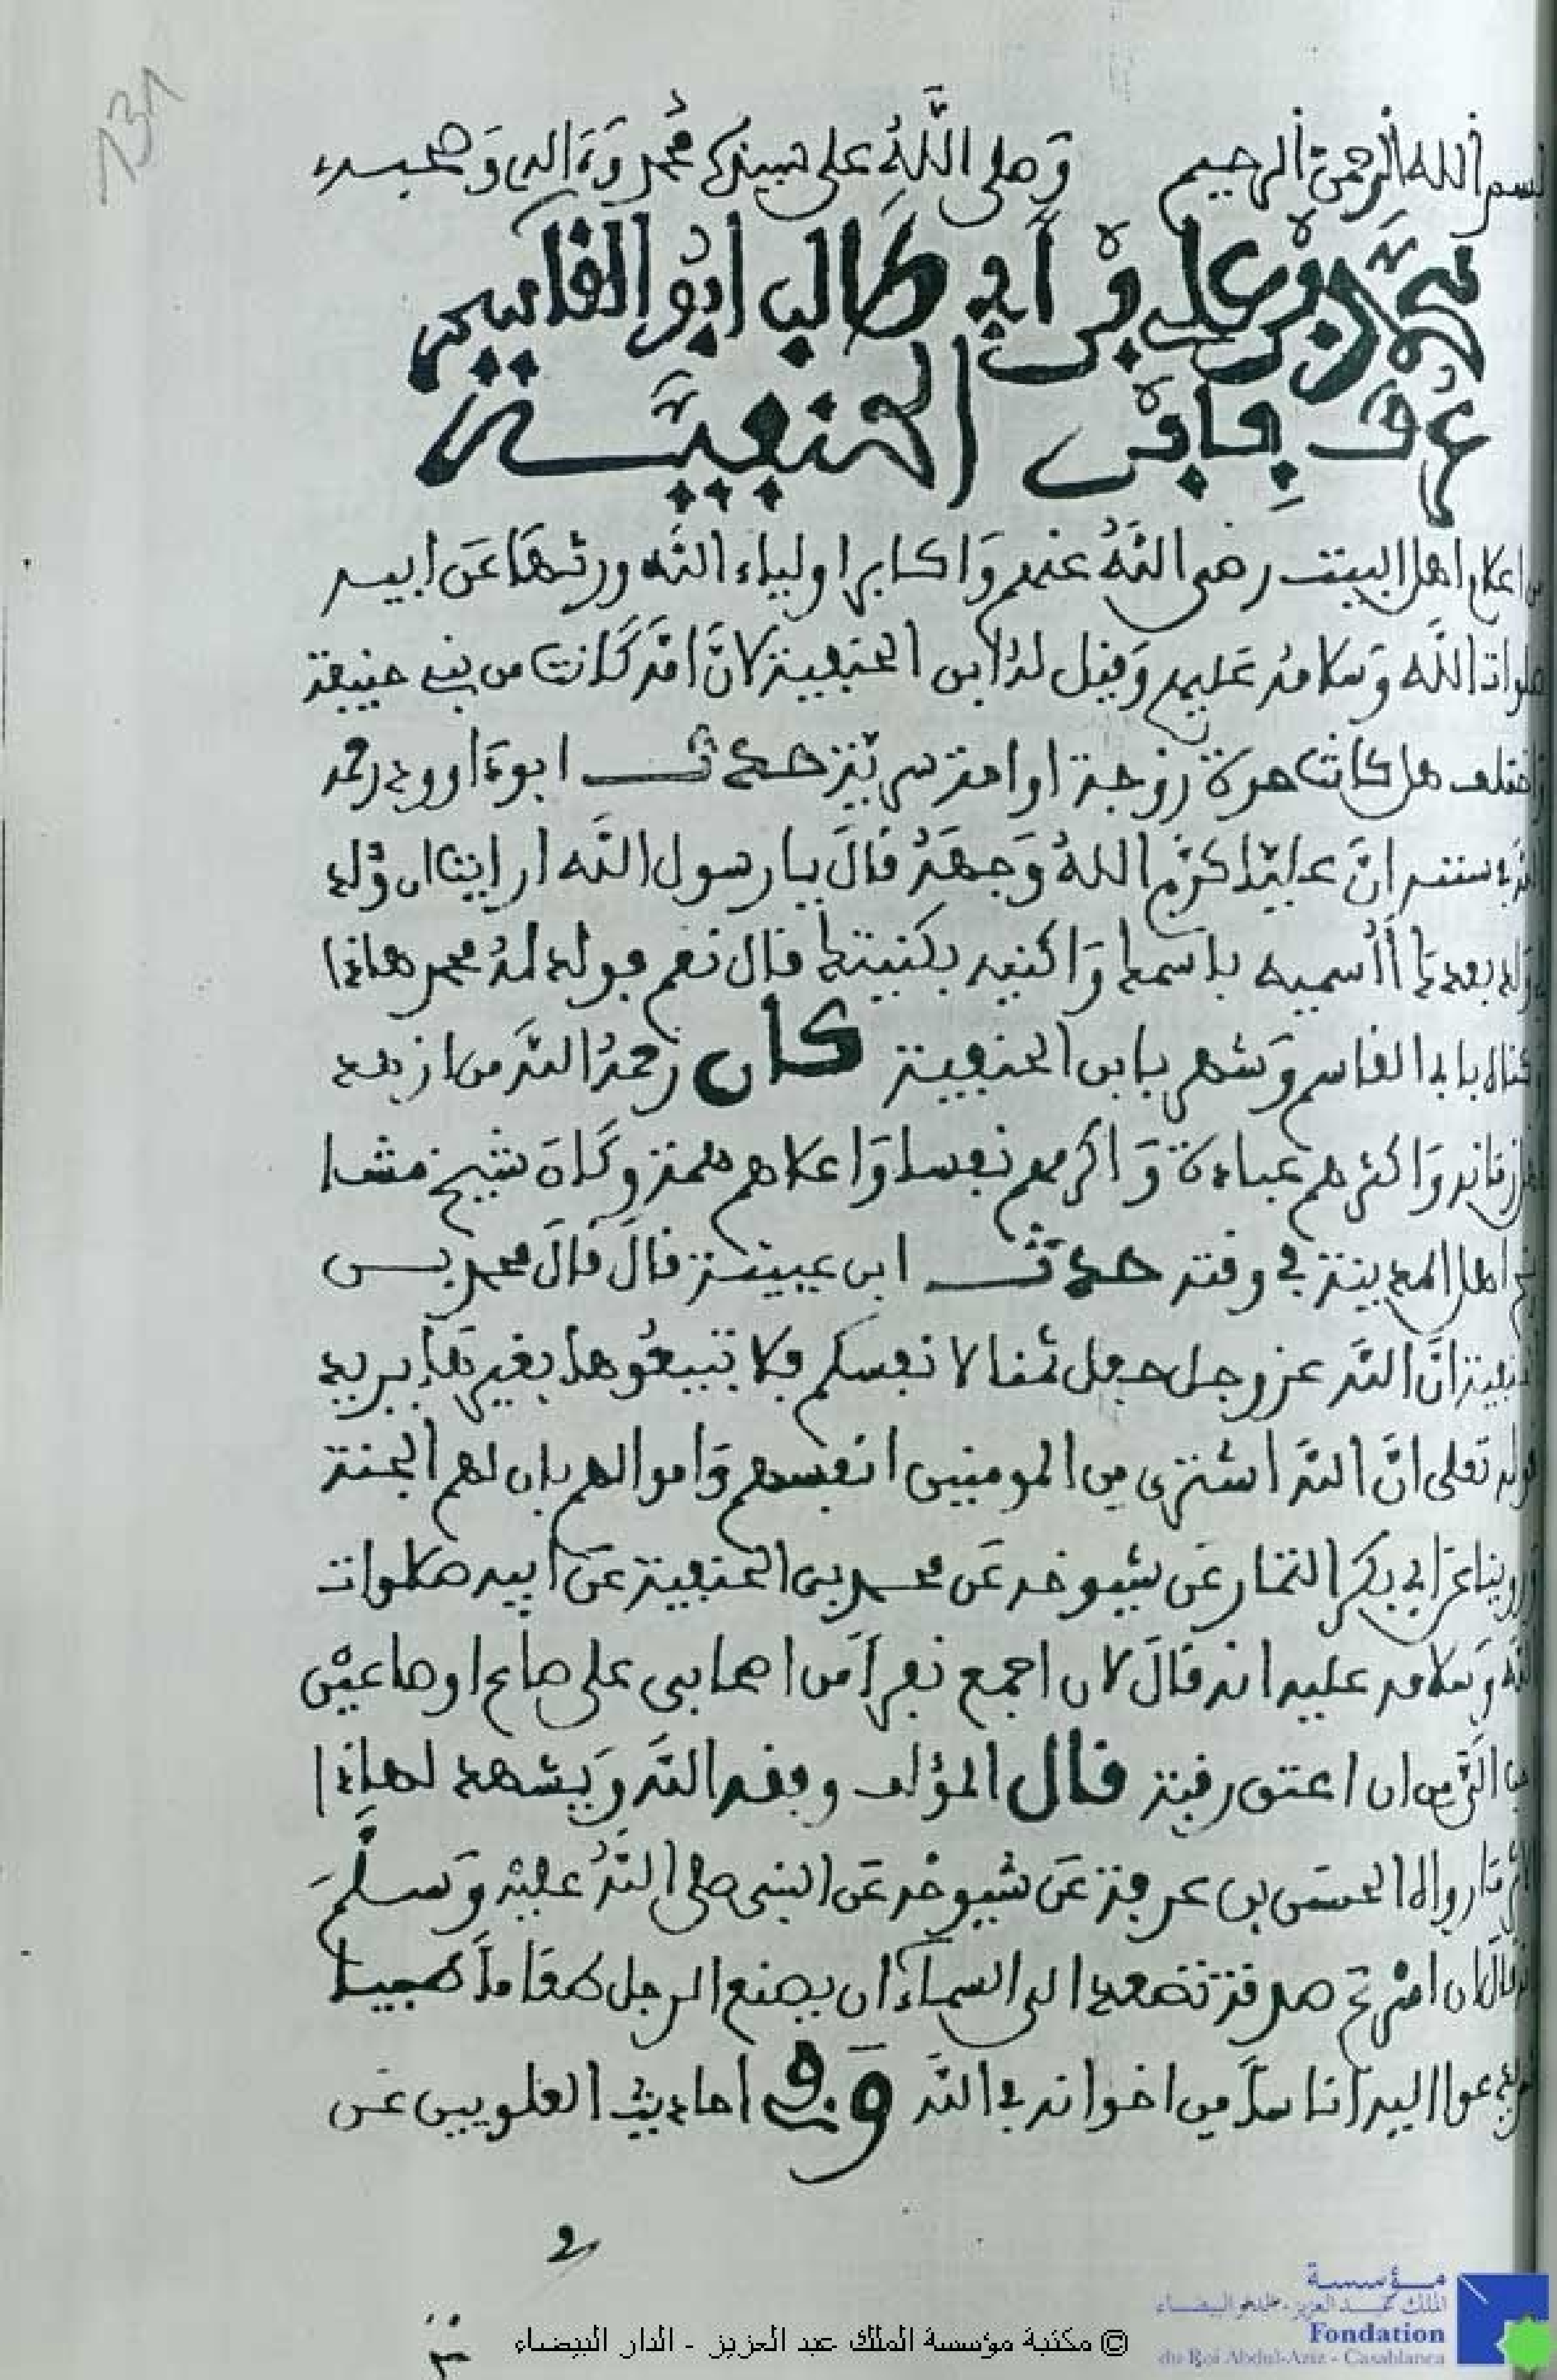 131
بسم الله الرحمن الرحيم وَصلى اللَّهُ على سيدنا مُحمد وَءاله وَصحبه
محمَّد بن علي بن أبي طالب ابو القاسم
عرف بِابن الحنفيَّة
من اعلام اهل البيت رضي اللَّهُ عنهم وَاكابر اولياء اللَّه ورثها عَن ابيه
صلوات اللَّه وَسلامه عَليهم وَقيل لهُ ابن الحنفية لانَّ امَّه كَانت من بني حنيفة
واختلف هل كانت حرة زوجة او امة سريَّة حدث ابو داوود رحمه
اللَّه بسنده انَّ عليّا كرَّم اللهُ وَجهَهُ قَالَ يا رسول اللَّه ارايت ان وُلد
لي ولد بعدك أأسميه باسمك وَاكنيه بكنيتك قال نعم فولد لهُ محمد هاذا
وكناه بابي القاسم وَشهر بابن الحنفية كان رَحمهُ اللَّه من ازهد
اهل زمانه وَاكثرهم عبادة وَاكرمهم نفسا وَاعلاهم همة وكَان شيخ مشا
يخ اهل المدينة في وقته حدث ابن عيينة قالَ قَالَ محمد بن
الحنفية انَّ اللَّه عز وجل جعل ثمنا لانفسكم فلا تبيعُوها بغيرهَا يريد
قوله تعلى انَّ اللَّه اشترى من المومنين انفسهم وَاموالهم بان لهم الجنة
وروينا عن ابي بكر التمار عَن شيوخه عَن محمد بن الحنفية عَن ابيه صلوات
اللَّه وَسلامه عليه انه قَالَ لان اجمع نفراً من اصحابي على صاع او صاعيْن
احب الَيَّ من ان اعتق رقبة قال المؤلف وفقه اللَّه وَيشهد لهاذا
الاثر مَا رواه الحسَن بن عرفة عَن شيوخه عَن النبي صلى اللَّهُ عليْه وَسلَّمَ
انه قالَ ان امن صدقة تصعد الى السماء ان يصنع الرجل طعَاماً طيبا
ثم يدعوا اليه اناساً من اخوانه في اللَّه وَفي احاديث العلويين عَن
2
© مكتبة مؤسسة الملك عبد العزيز - الدار البيضاء
مؤسسة
الملك عبد العزيز - الدار البيضاء
Fondation
du Roi Abdul-Aziz - Casablanca